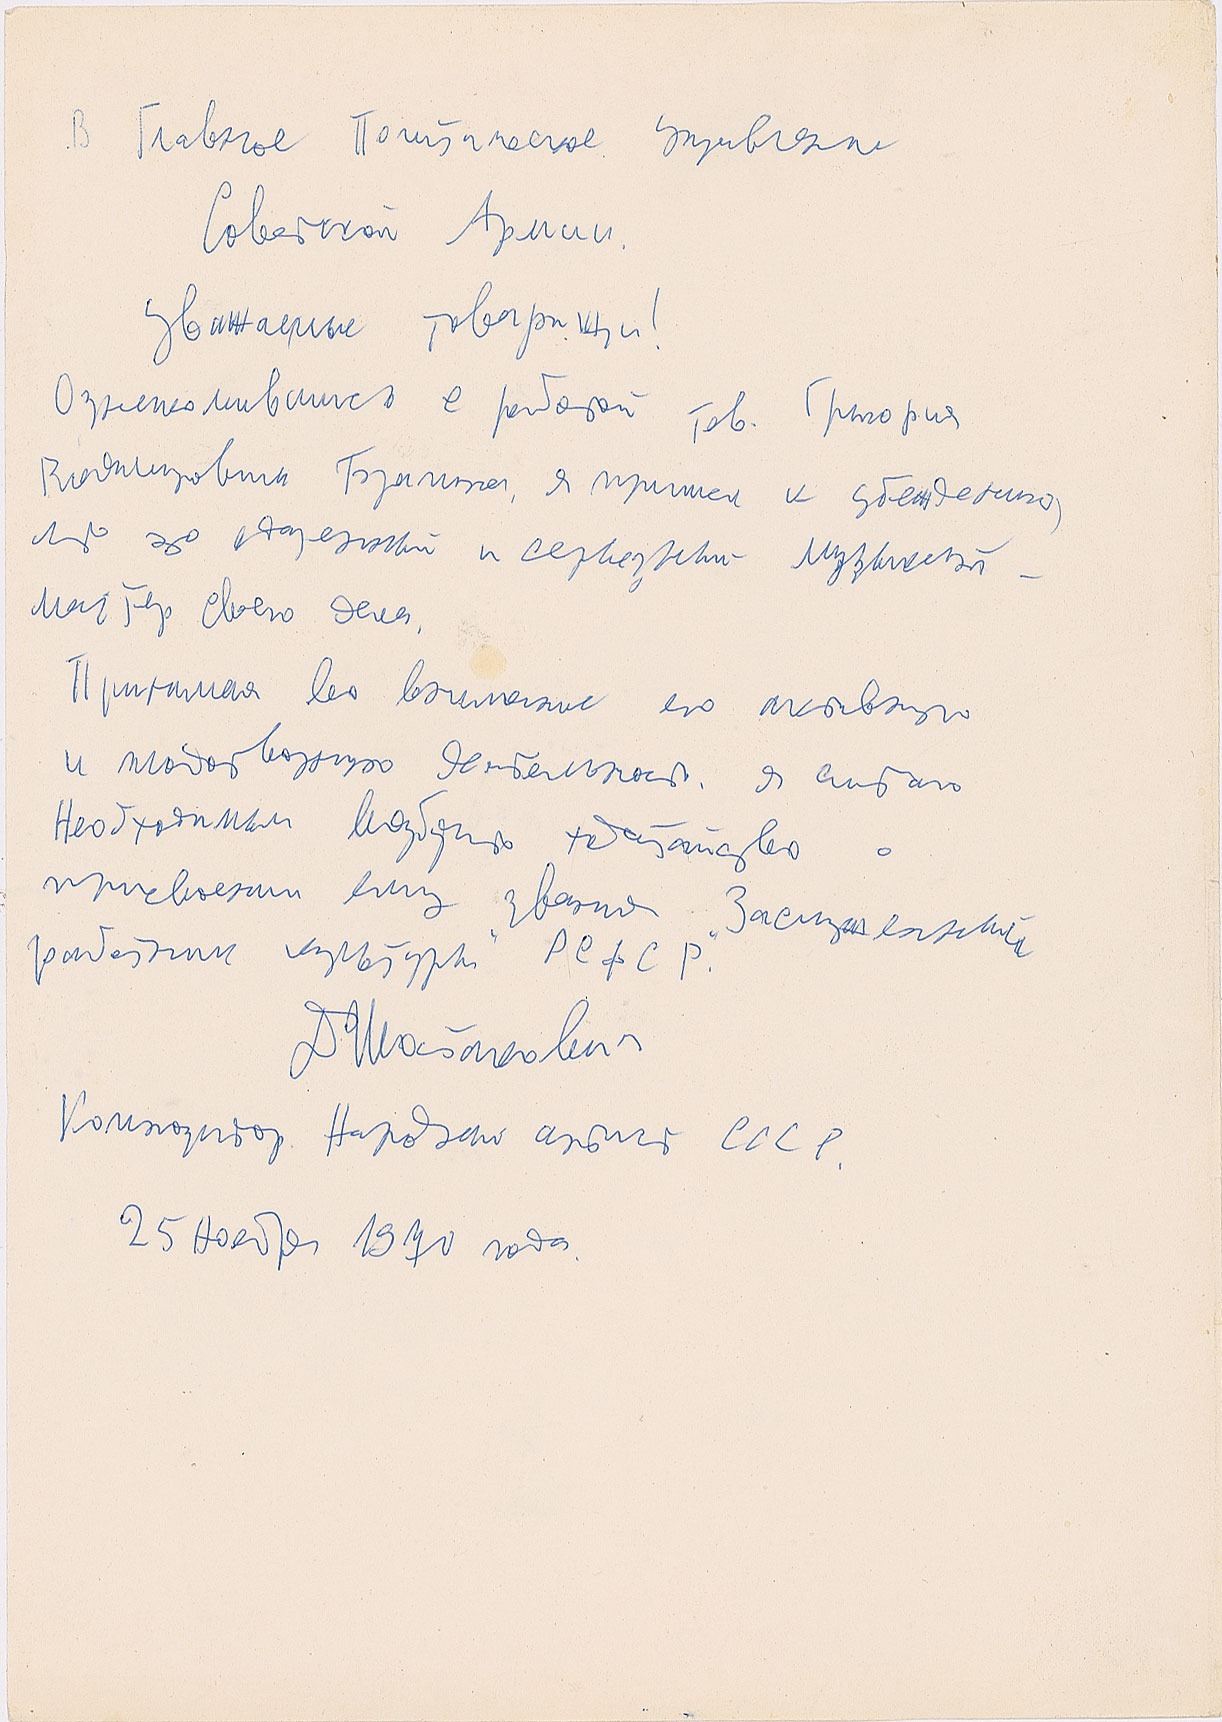 В Главное Политическое Управление
Советской Армии.
Уважаемые товарищи!
Ознакомившись с работой тов. Григория
Владимировича я пришел к убеждению,
что это одаренный и серьезный музыкант –
мастер своего дела.
Принимая во внимание его активную
и плодотворную деятельность, я считаю
необходимым возбудить ходатайство о
присвоении ему звания "Заслуженный
работник культуры" РСФСР."
Д Шостакович
Композитор. Народный артист СССР.
25 Ноября 1970 года.